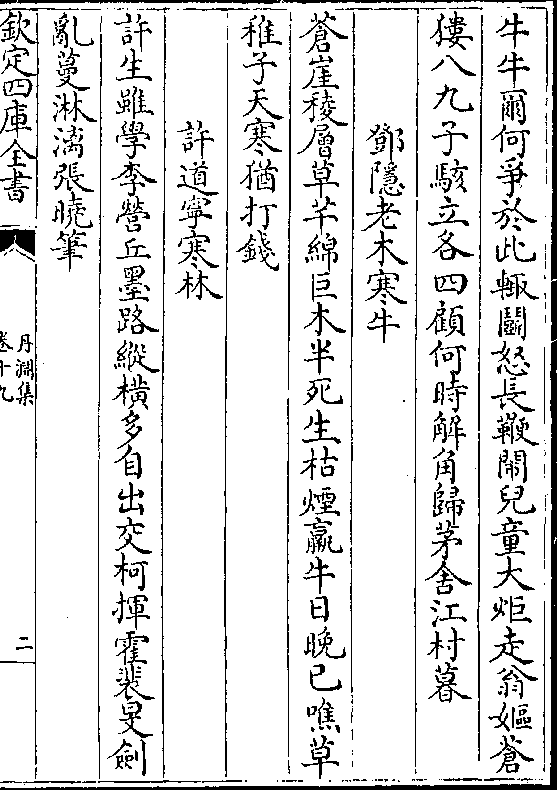 牛牛爾何爭於此輙鬬怒長鞭鬧兒童大炬走翁嫗蒼
獴八九子駭立各四顧何時解角歸茅舍江村暮
鄧隱老木寒牛
蒼崖稜層草芊綿巨木半死生枯煙羸牛日晚已噍草
稚子天寒猶打錢
許道寧寒林
許生雖學李營丘墨路縱橫多自出交柯揮霍裴旻劍
亂蔓淋漓張曉筆
欽定四庫全書
丹淵集
卷十九
二